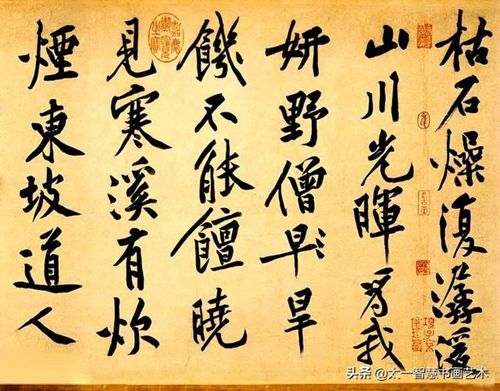 枯石燥復潺湲
山川光暉為我
妍野僧早旱
饑不能饘曉
見寒溪有炊
煙東坡道人
嘉慶御覽之寶
头条 @太一智慧书画艺术